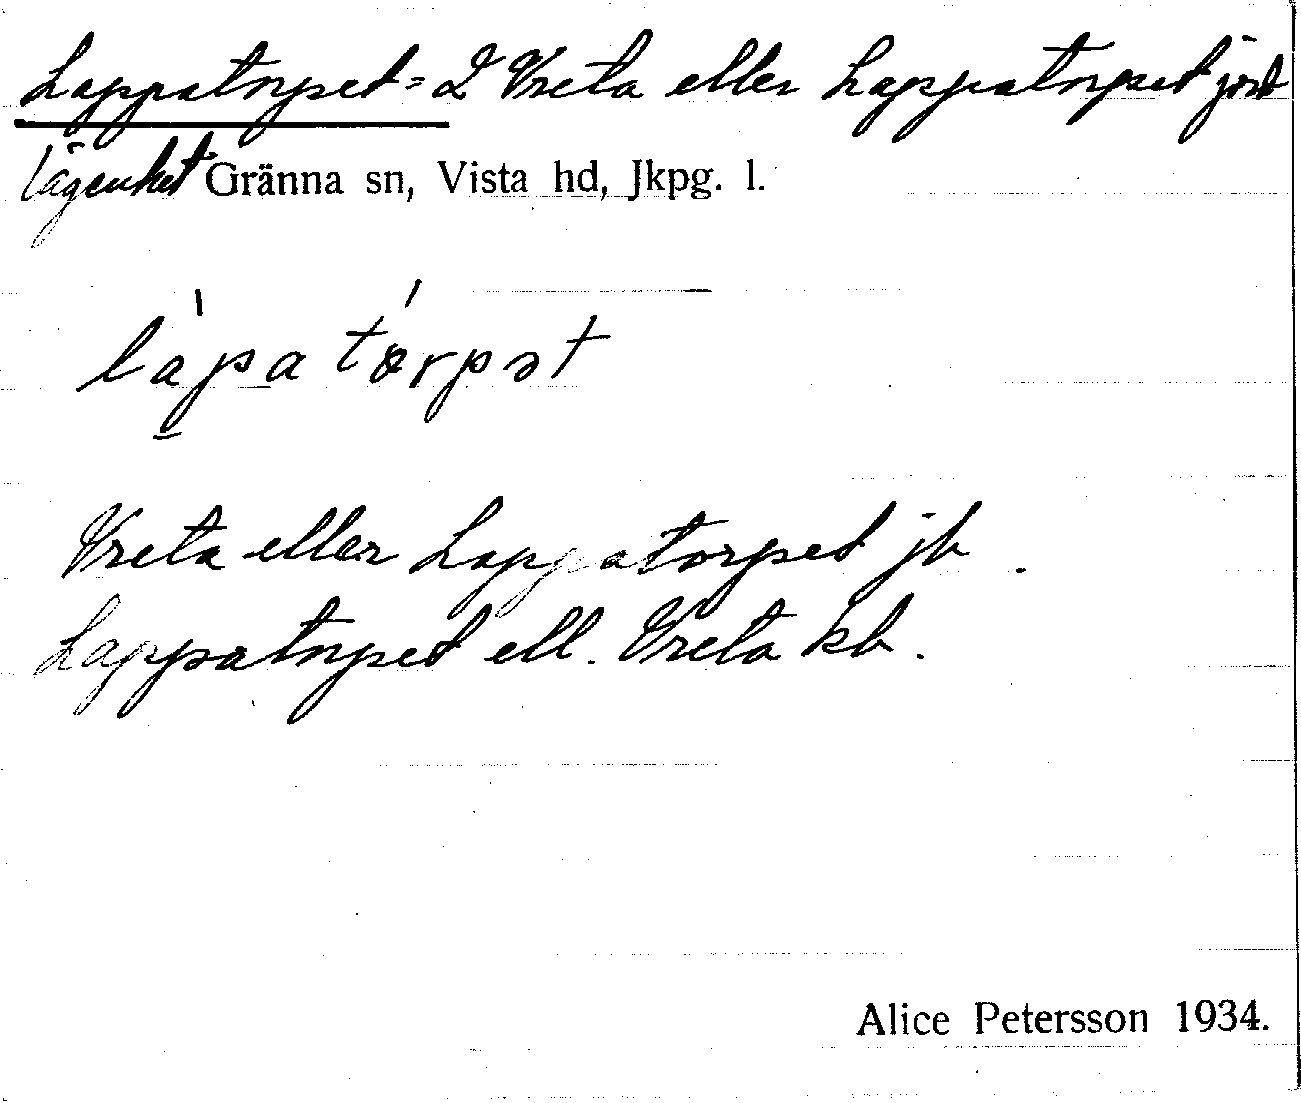 Lappatorpet = 2 Vreta eller Lappatorpet jord
lägenhet Gränna sn, Vista hd, Jkpg. l.
làpa tórpət
Vreta eller Lappatorpet jb.
Lappatorpet ell. Vreta kb.
Alice Petersson 1934.